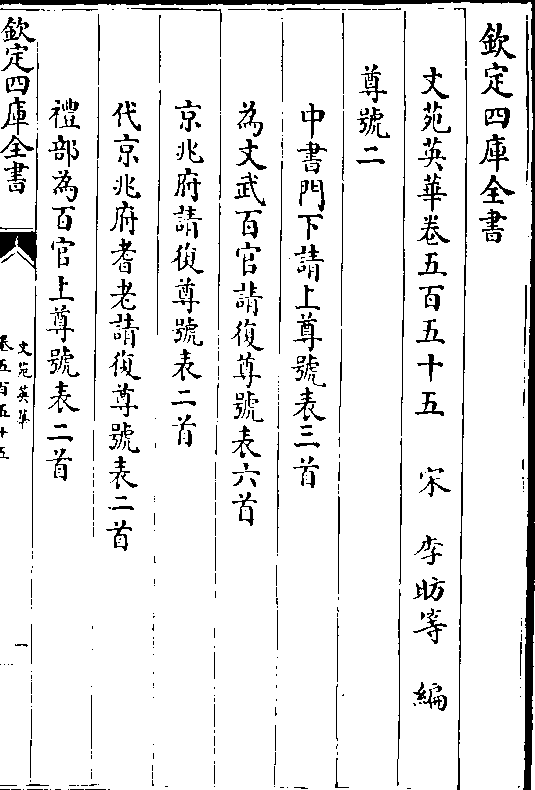 欽定四庫全書
文苑英華卷五百五十五　宋　李昉等　編
尊號二
中書門下請上尊號表三首
為文武百官請復尊號表六首
京兆府請復尊號表二首
代京兆府耆老請復尊號表二首
禮部為百官上尊號表二首
欽定四庫全書
文苑英華
卷五百五十五
一